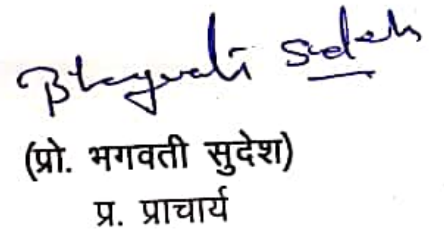 Bhagwati Sudesh
(प्रो. भगवती सुदेश)
प्र. प्राचार्य